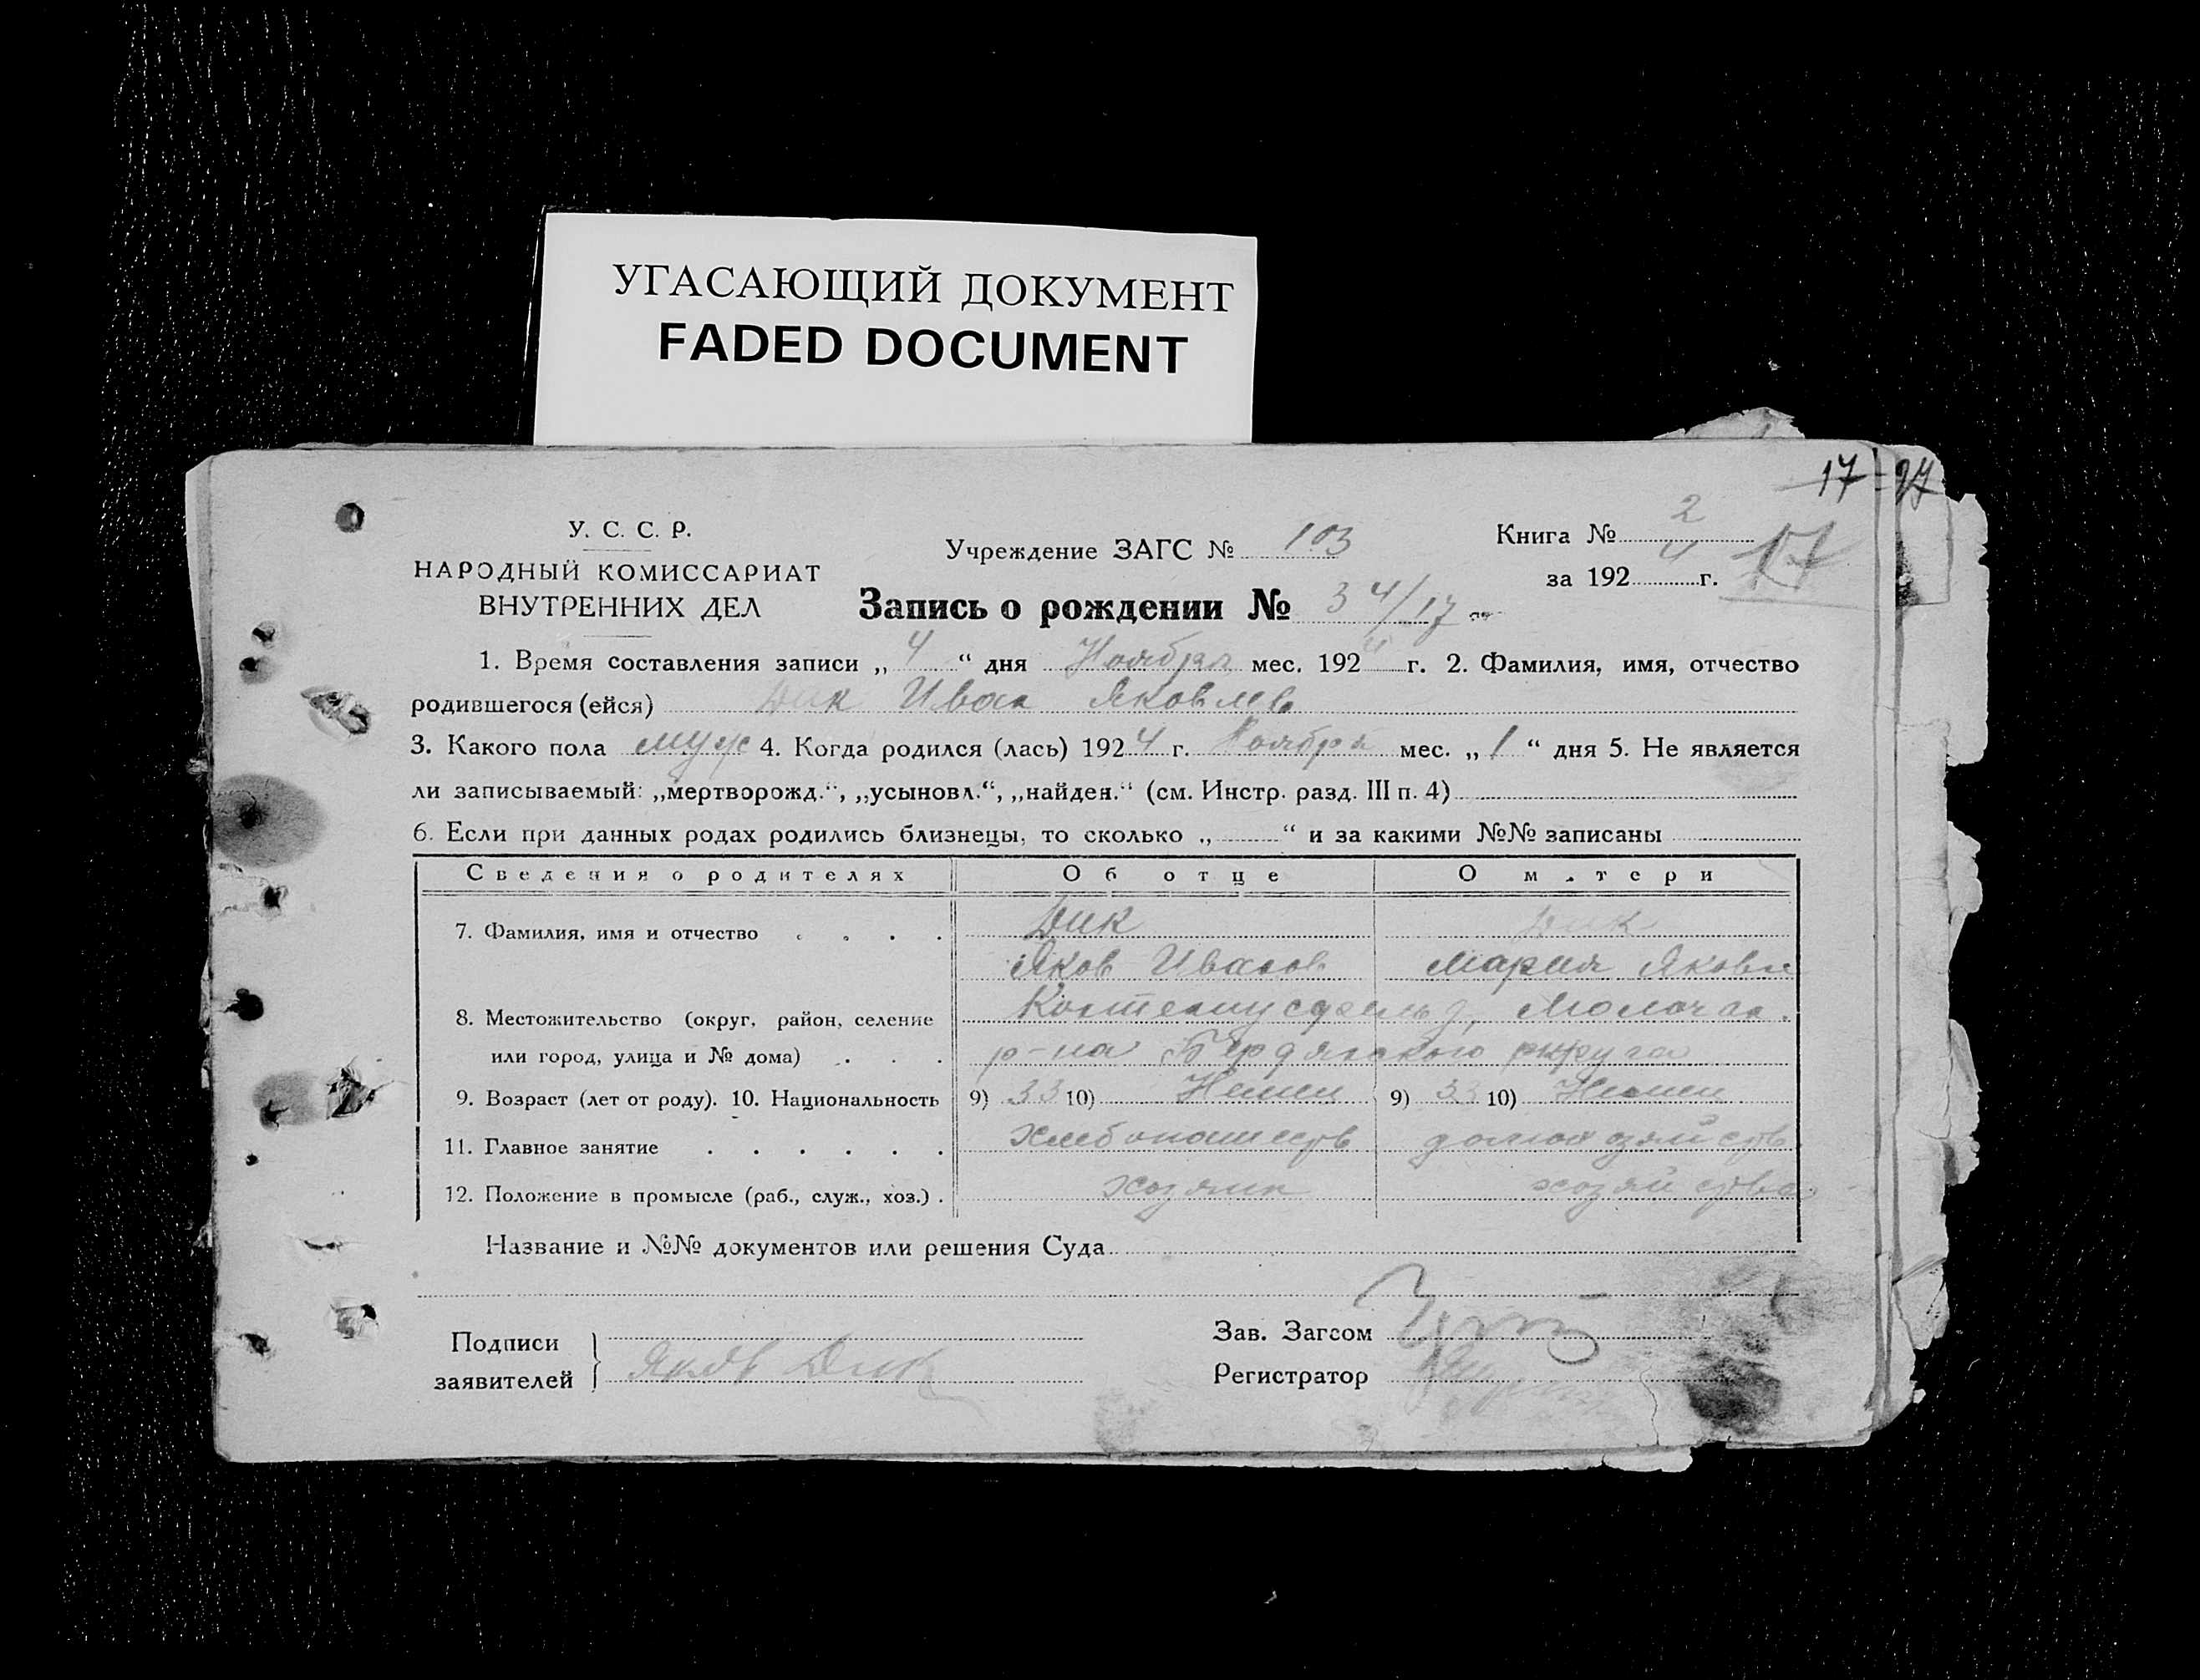 УГАСАЮЩИЙ ДОКУМЕНТ
FADED DOCUMENT
17 - 97
У. С. С. Р.
НАРОДНЫЙ КОМИССАРИАТ
ВНУТРЕННИХ ДЕЛ
Учреждение ЗАГС № 103
Книга № 2
за 1924 г. 17
Запись о рождении № 34/17
1. Время составления записи „4“ дня Ноября мес. 1924 г. 2. Фамилия, имя, отчество
родившегося (ейся) Дик Иван Яковлев
3. Какого пола муж 4. Когда родился (лась) 1924 г. Ноября мес. „1“ дня 5. Не является
ли записываемый: „мертворожд.“, „усыновл.“, „найден.“ (см. Инстр. разд. III п. 4)
6. Если при данных родах родились близнецы, то сколько „ “ и за какими №№ записаны
Сведения о родителях Об отце О матери
7. Фамилия, имя и отчество Дик Дик
Яков Иванов Мария Яковл
8. Местожительство (округ, район, селение Молочан.
или город, улица и № дома) р-на Бердянского округа
9. Возраст (лет от роду). 10. Национальность 9) 33 10) Немец 9) 33 10) Немец
11. Главное занятие хлебопашеств домохозяйств
12. Положение в промысле (раб., служ., хоз.) хозяин хозяйства
Название и №№ документов или решения Суда
Подписи
заявителей Яков Дик
Зав. Загсом
Регистратор